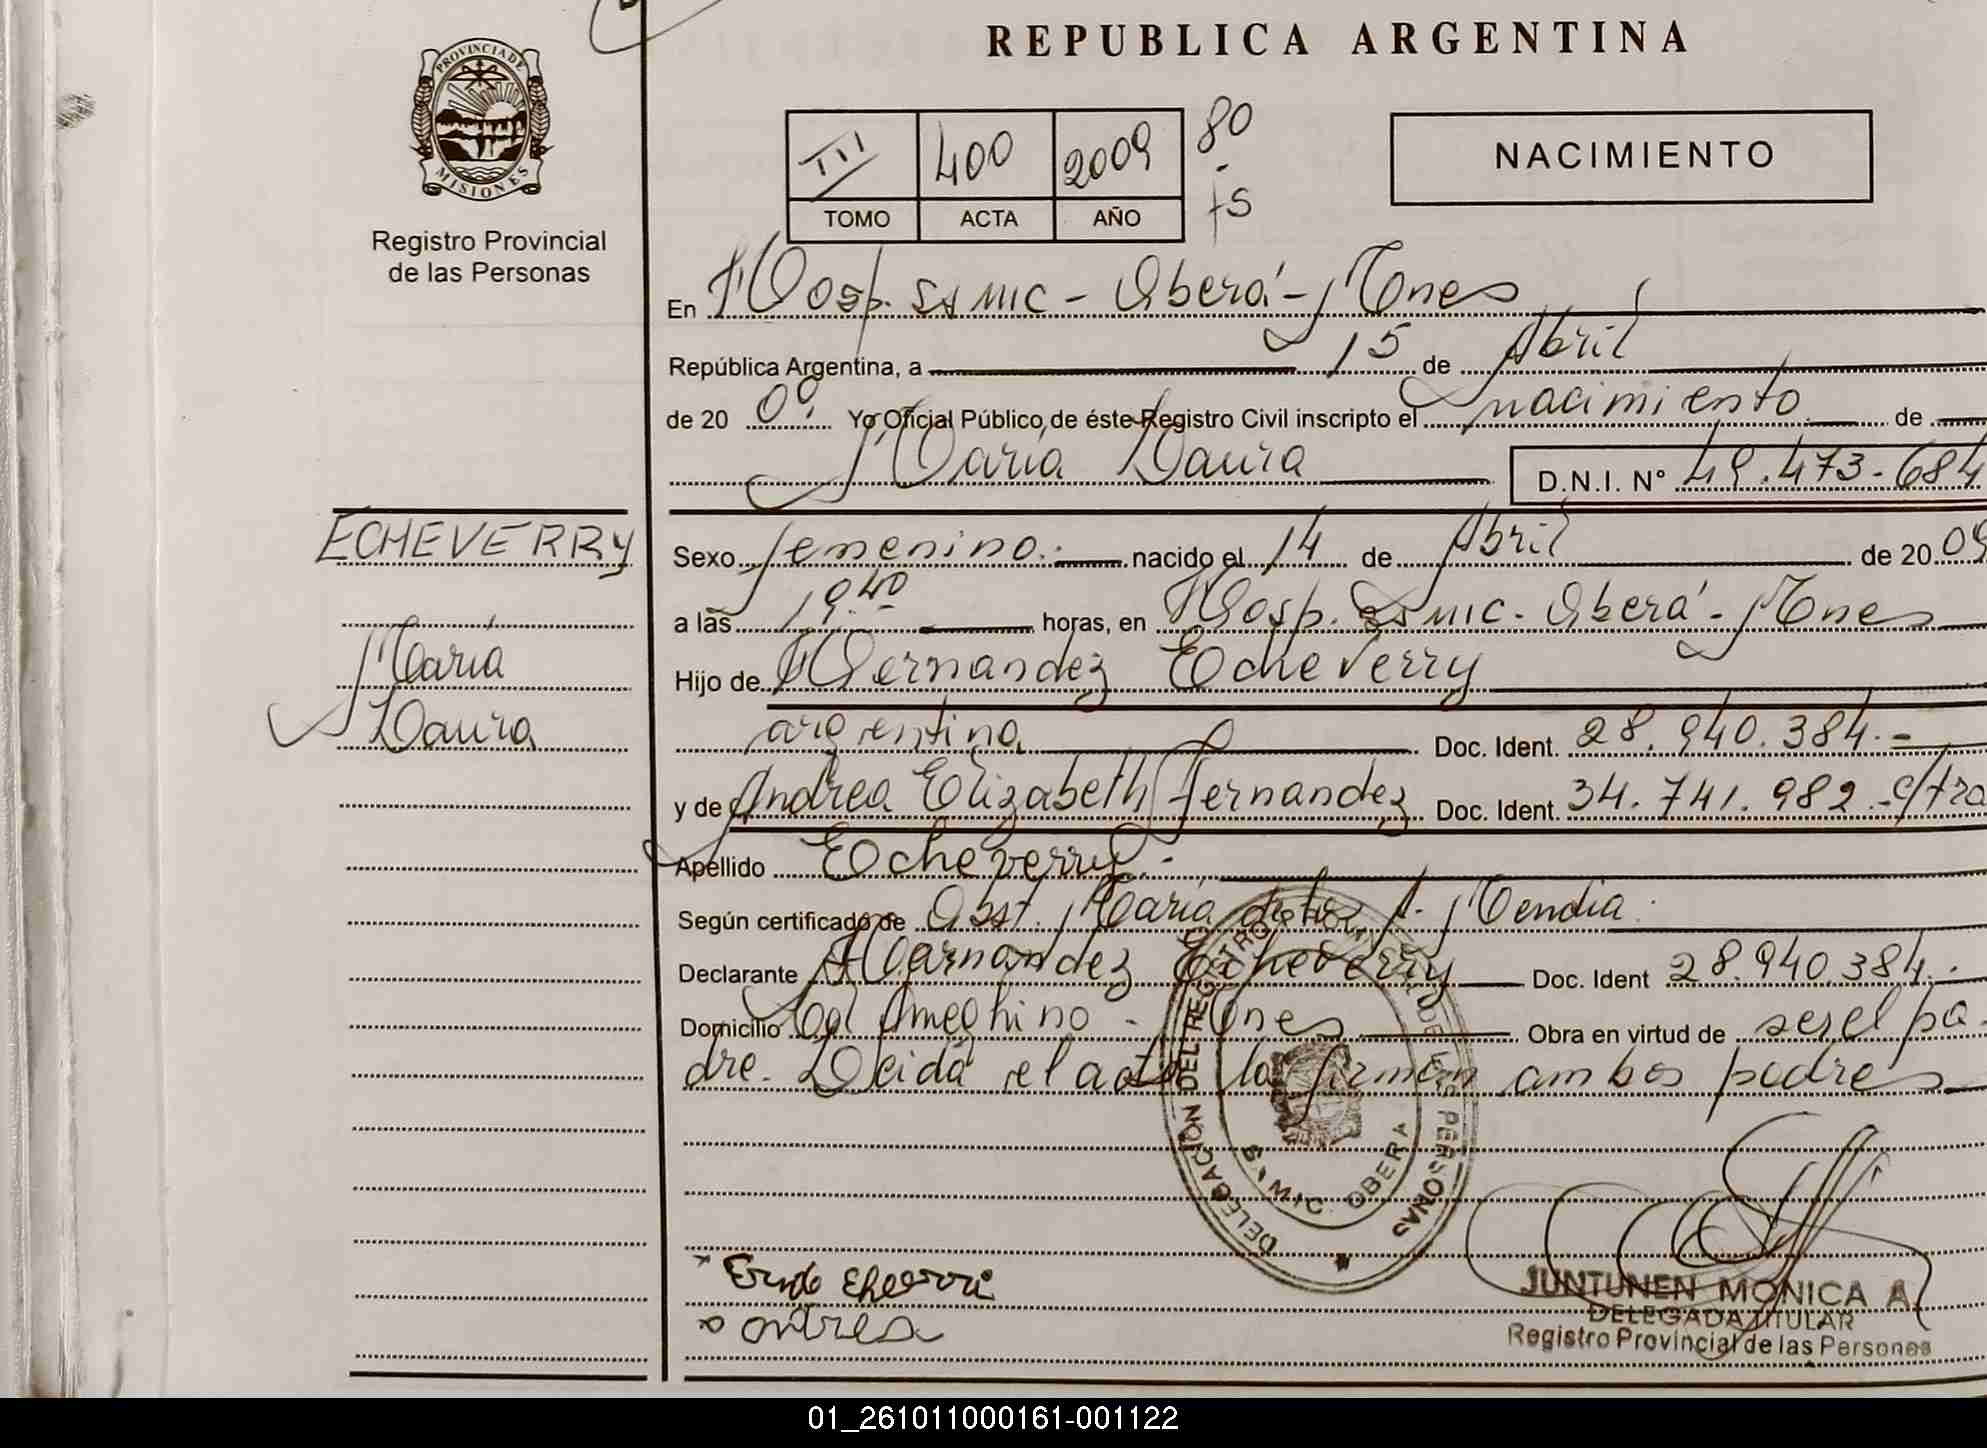 REPUBLICA ARGENTINA
PROVINCIA DE MISIONES
Registro Provincial
de las Personas
III 400 2009 80
TOMO ACTA AÑO
NACIMIENTO
En Hosp. SAMIC - Oberá - Mnes
República Argentina, a 15 de Abril
de 20 09. Yo Oficial Público de éste Registro Civil inscripto el nacimiento de
María Laura D.N.I. Nº 49.473.684
ECHEVERRY
María
Laura
Sexo femenino. nacido el 14 de Abril de 20 09
a las 19.40 horas, en Hosp. SAMIC - Oberá - Mnes
Hijo de Hernandez Echeverry
argentina Doc. Ident. 28.940.384.-
y de Andrea Elizabeth Fernandez Doc. Ident. 34.741.982
Apellido Echeverry.-
Según certificado de Obst. María A. Mendia
Declarante Hernandez Echeverry Doc. Ident 28.940.384.
Domicilio Col Ameghino - Mnes Obra en virtud de ser el pa-
dre. Leida el acta la firman ambos padres
DELEGACION DEL REGISTRO PROVINCIAL DE LAS PERSONAS
SAMIC OBERA
andrea
JUNTUNEN MONICA A.
DELEGADA TITULAR
Registro Provincial de las Personas
01_261011000161-001122